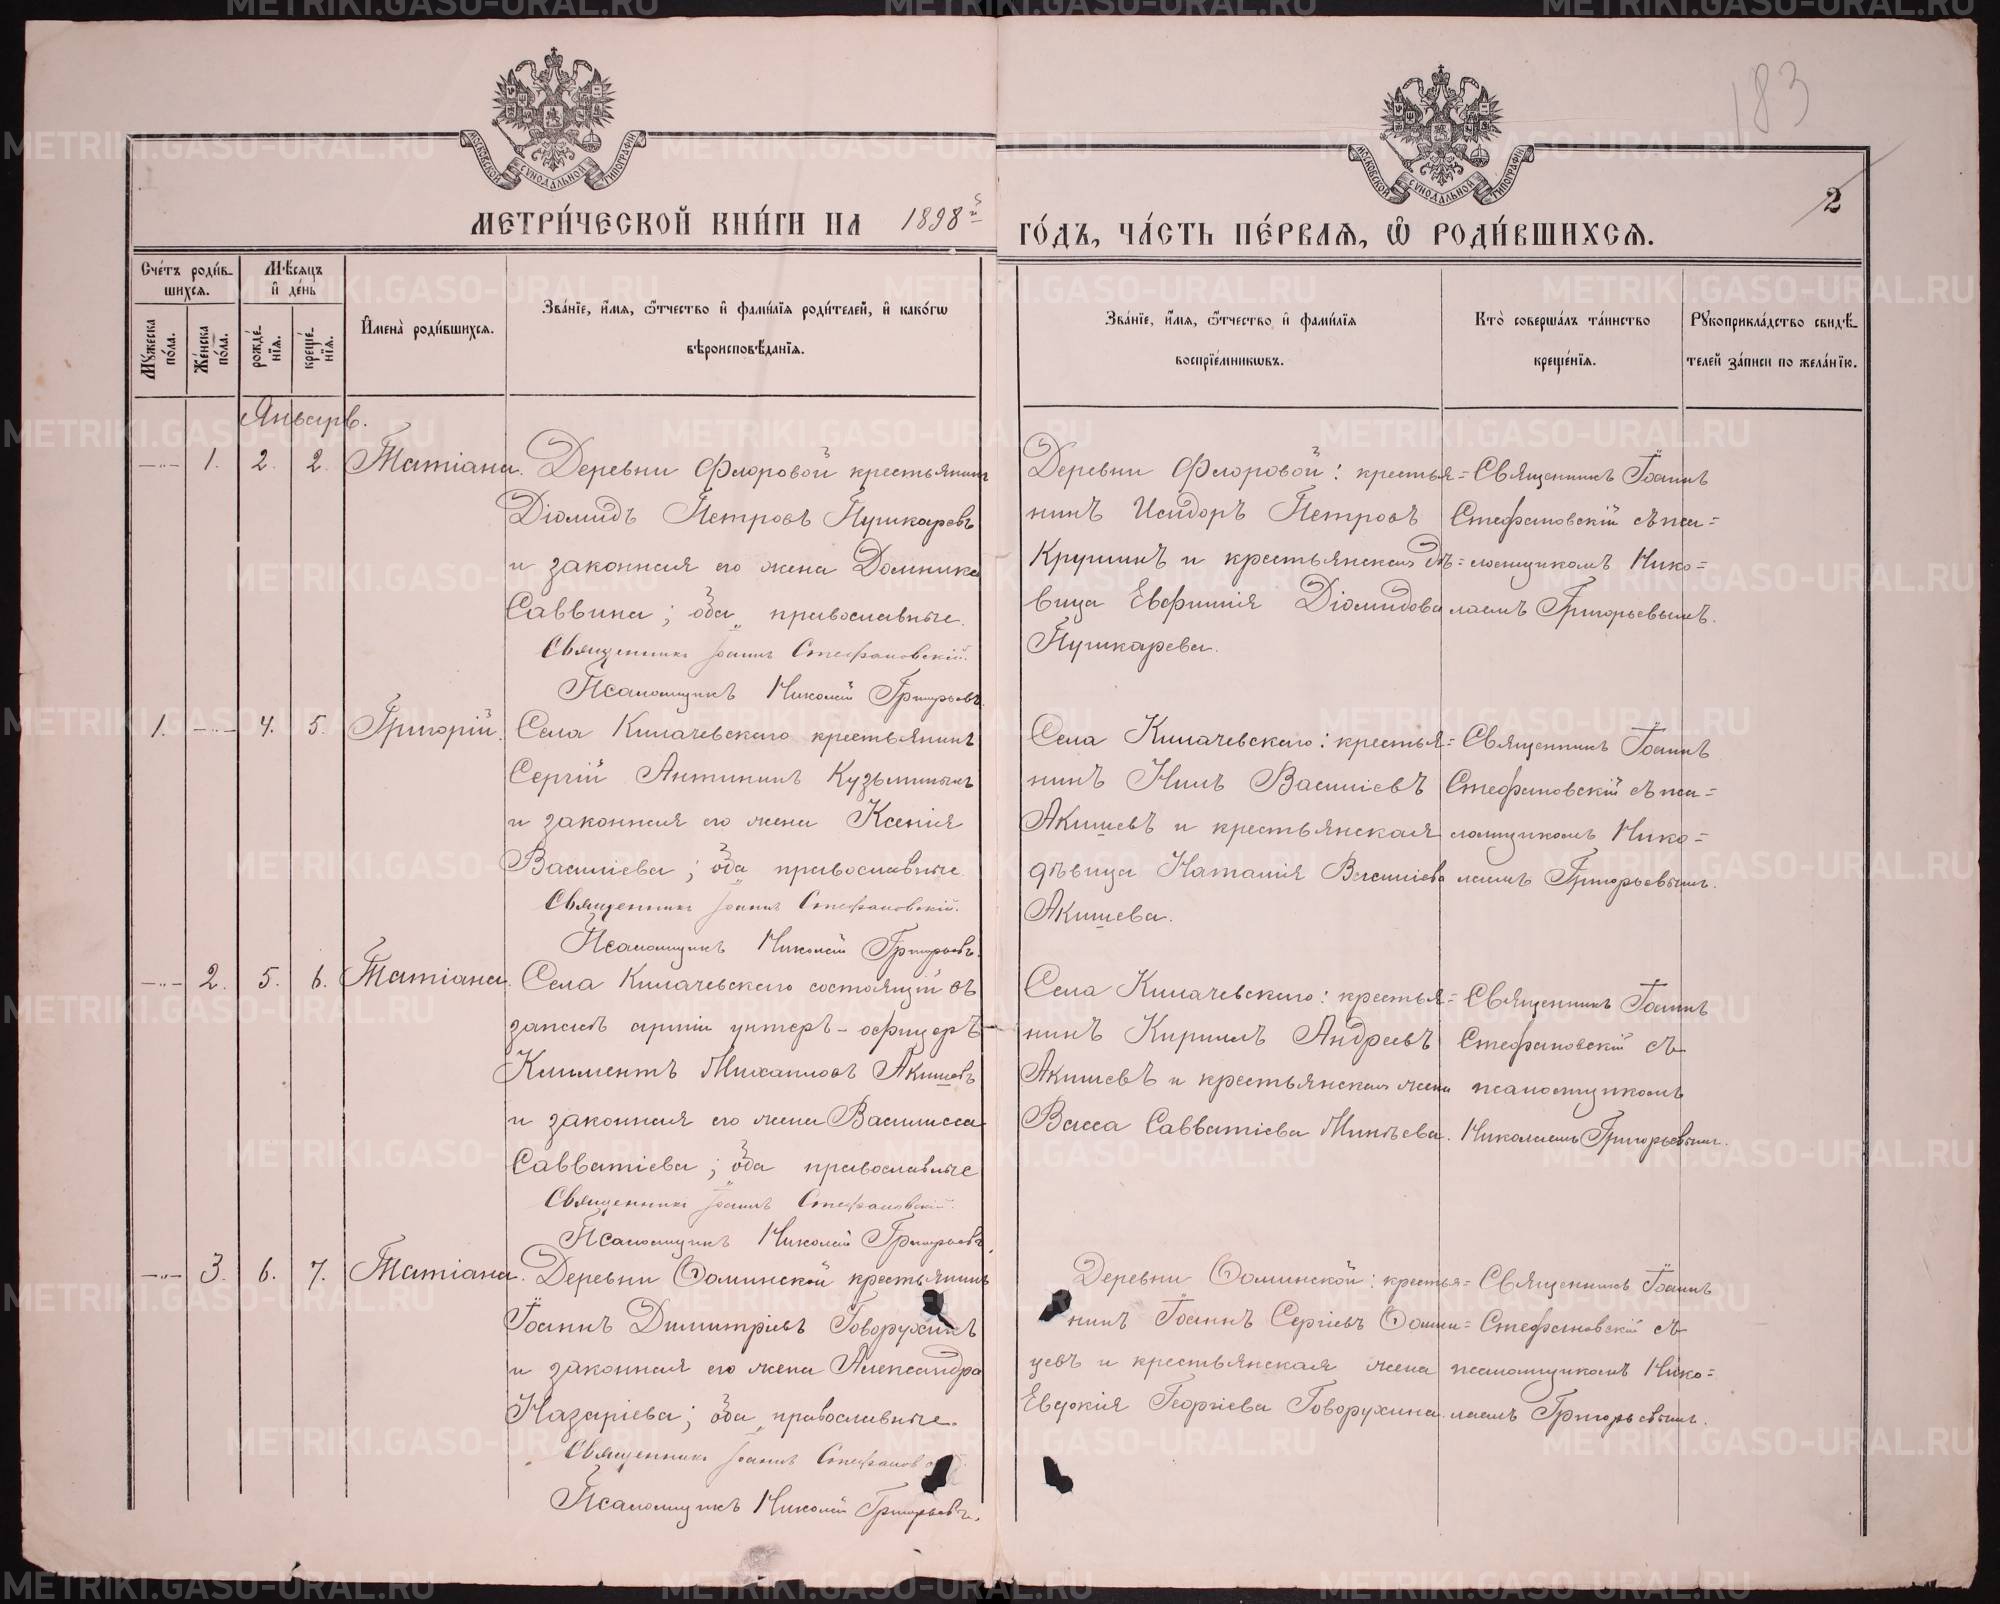 183
2
МОСКОВСКОЙ СѴНОДАЛЬНОЙ ТИПОГРАФІИ
МОСКОВСКОЙ СѴНОДАЛЬНОЙ ТИПОГРАФІИ
МЕТРИ́ЧЕСКОЙ КНИ́ГИ НА 1898й ГО́ДЪ, ЧА́СТЬ ПЕ́РВАѦ, Ѡ РОДИ́ВШИХСѦ.
Сче́тъ роди́в-
шихсѧ.
Мꙋжеска по́ла.
Же́нска по́ла.
Мѣ́сѧцъ и҆ де́нь
рожде́-нїѧ.
креще́-нїѧ.
И҆мена̀ роди́вшихсѧ.
Зва́нїе, и҆́мѧ, ѻ҆́тчество и҆ фамилїѧ роди́телей, и҆ како́гѡ
вѣроисповѣ́данїѧ.
Зва́нїе, и҆́мѧ, ѻ҆́тчество и҆ фами́лїѧ
воспрїе́мникѡвъ.
Кто̀ соверша́лъ та́инство
креще́нїѧ.
Рꙋкоприкла́дство свидѣ́-
телей за́писи по жела́нїю.
Январь.
—„— 1. 2. 2. Татіана.
Деревни Флоровой крестьянинъ
Діомидъ Петровъ Пушкаревъ
и законная его жена Домника
Саввина; оба православные.
Священникъ Іоаннъ Стефановскій.
Псаломщикъ Николай Григорьевъ.
Деревни Флоровой: крестья=
нинъ Исидоръ Петровъ
Крушинъ и крестьянская дѣ=
вица Евфимія Діомидова
Пушкарева.
Священникъ Іоаннъ
Стефановскій съ пса=
ломщикомъ Нико=
лаемъ Григорьевымъ.
1. —„— 4. 5. Григорій.
Села Килачевскаго крестьянинъ
Сергій Антипинъ Кузьминыхъ
и законная его жена Ксенія
Василіева; оба православные
Священникъ Іоаннъ Стефановскій.
Псаломщикъ Николай Григорьевъ.
Села Килачевскаго: крестья=
нинъ Нилъ Василіевъ
Акишевъ и крестьянская
дѣвица Наталія Василіева
Акишева.
Священникъ Іоаннъ
Стефановскій съ пса=
ломщикомъ Нико=
лаемъ Григорьевымъ.
—„— 2. 5. 6. Татіана.
Села Килачевскаго состоящій въ
запасѣ арміи унтеръ-офицеръ
Климентъ Михаиловъ Акишевъ
и законная его жена Василисса
Савватіева; оба православные
Священникъ Іоаннъ Стефановскій.
Псаломщикъ Николай Григорьевъ.
Села Килачевскаго: крестья=
нинъ Кириллъ Андреевъ
Акишевъ и крестьянская жена
Васса Савватіева Микѣева.
Священникъ Іоаннъ
Стефановскій съ
псаломщикомъ
Николаемъ Григорьевымъ.
—„— 3. 6. 7. Татіана.
Деревни Ѳоминской крестьянинъ
Іоаннъ Димитріевъ Говорухинъ
и законная его жена Александра
Назаріева; оба православные.
Священникъ Іоаннъ
Псаломщикъ Николай Григорьевъ.
Деревни Ѳоминской: крестья=
нинъ Іоаннъ Сергіевъ Ѳоми=
цевъ и крестьянская жена
Евдокія Георгіева Говорухина.
Священникъ Іоаннъ
Стефановскій съ
псаломщикомъ Нико=
лаемъ Григорьевымъ.
METRIKI.GASO-URAL.RU